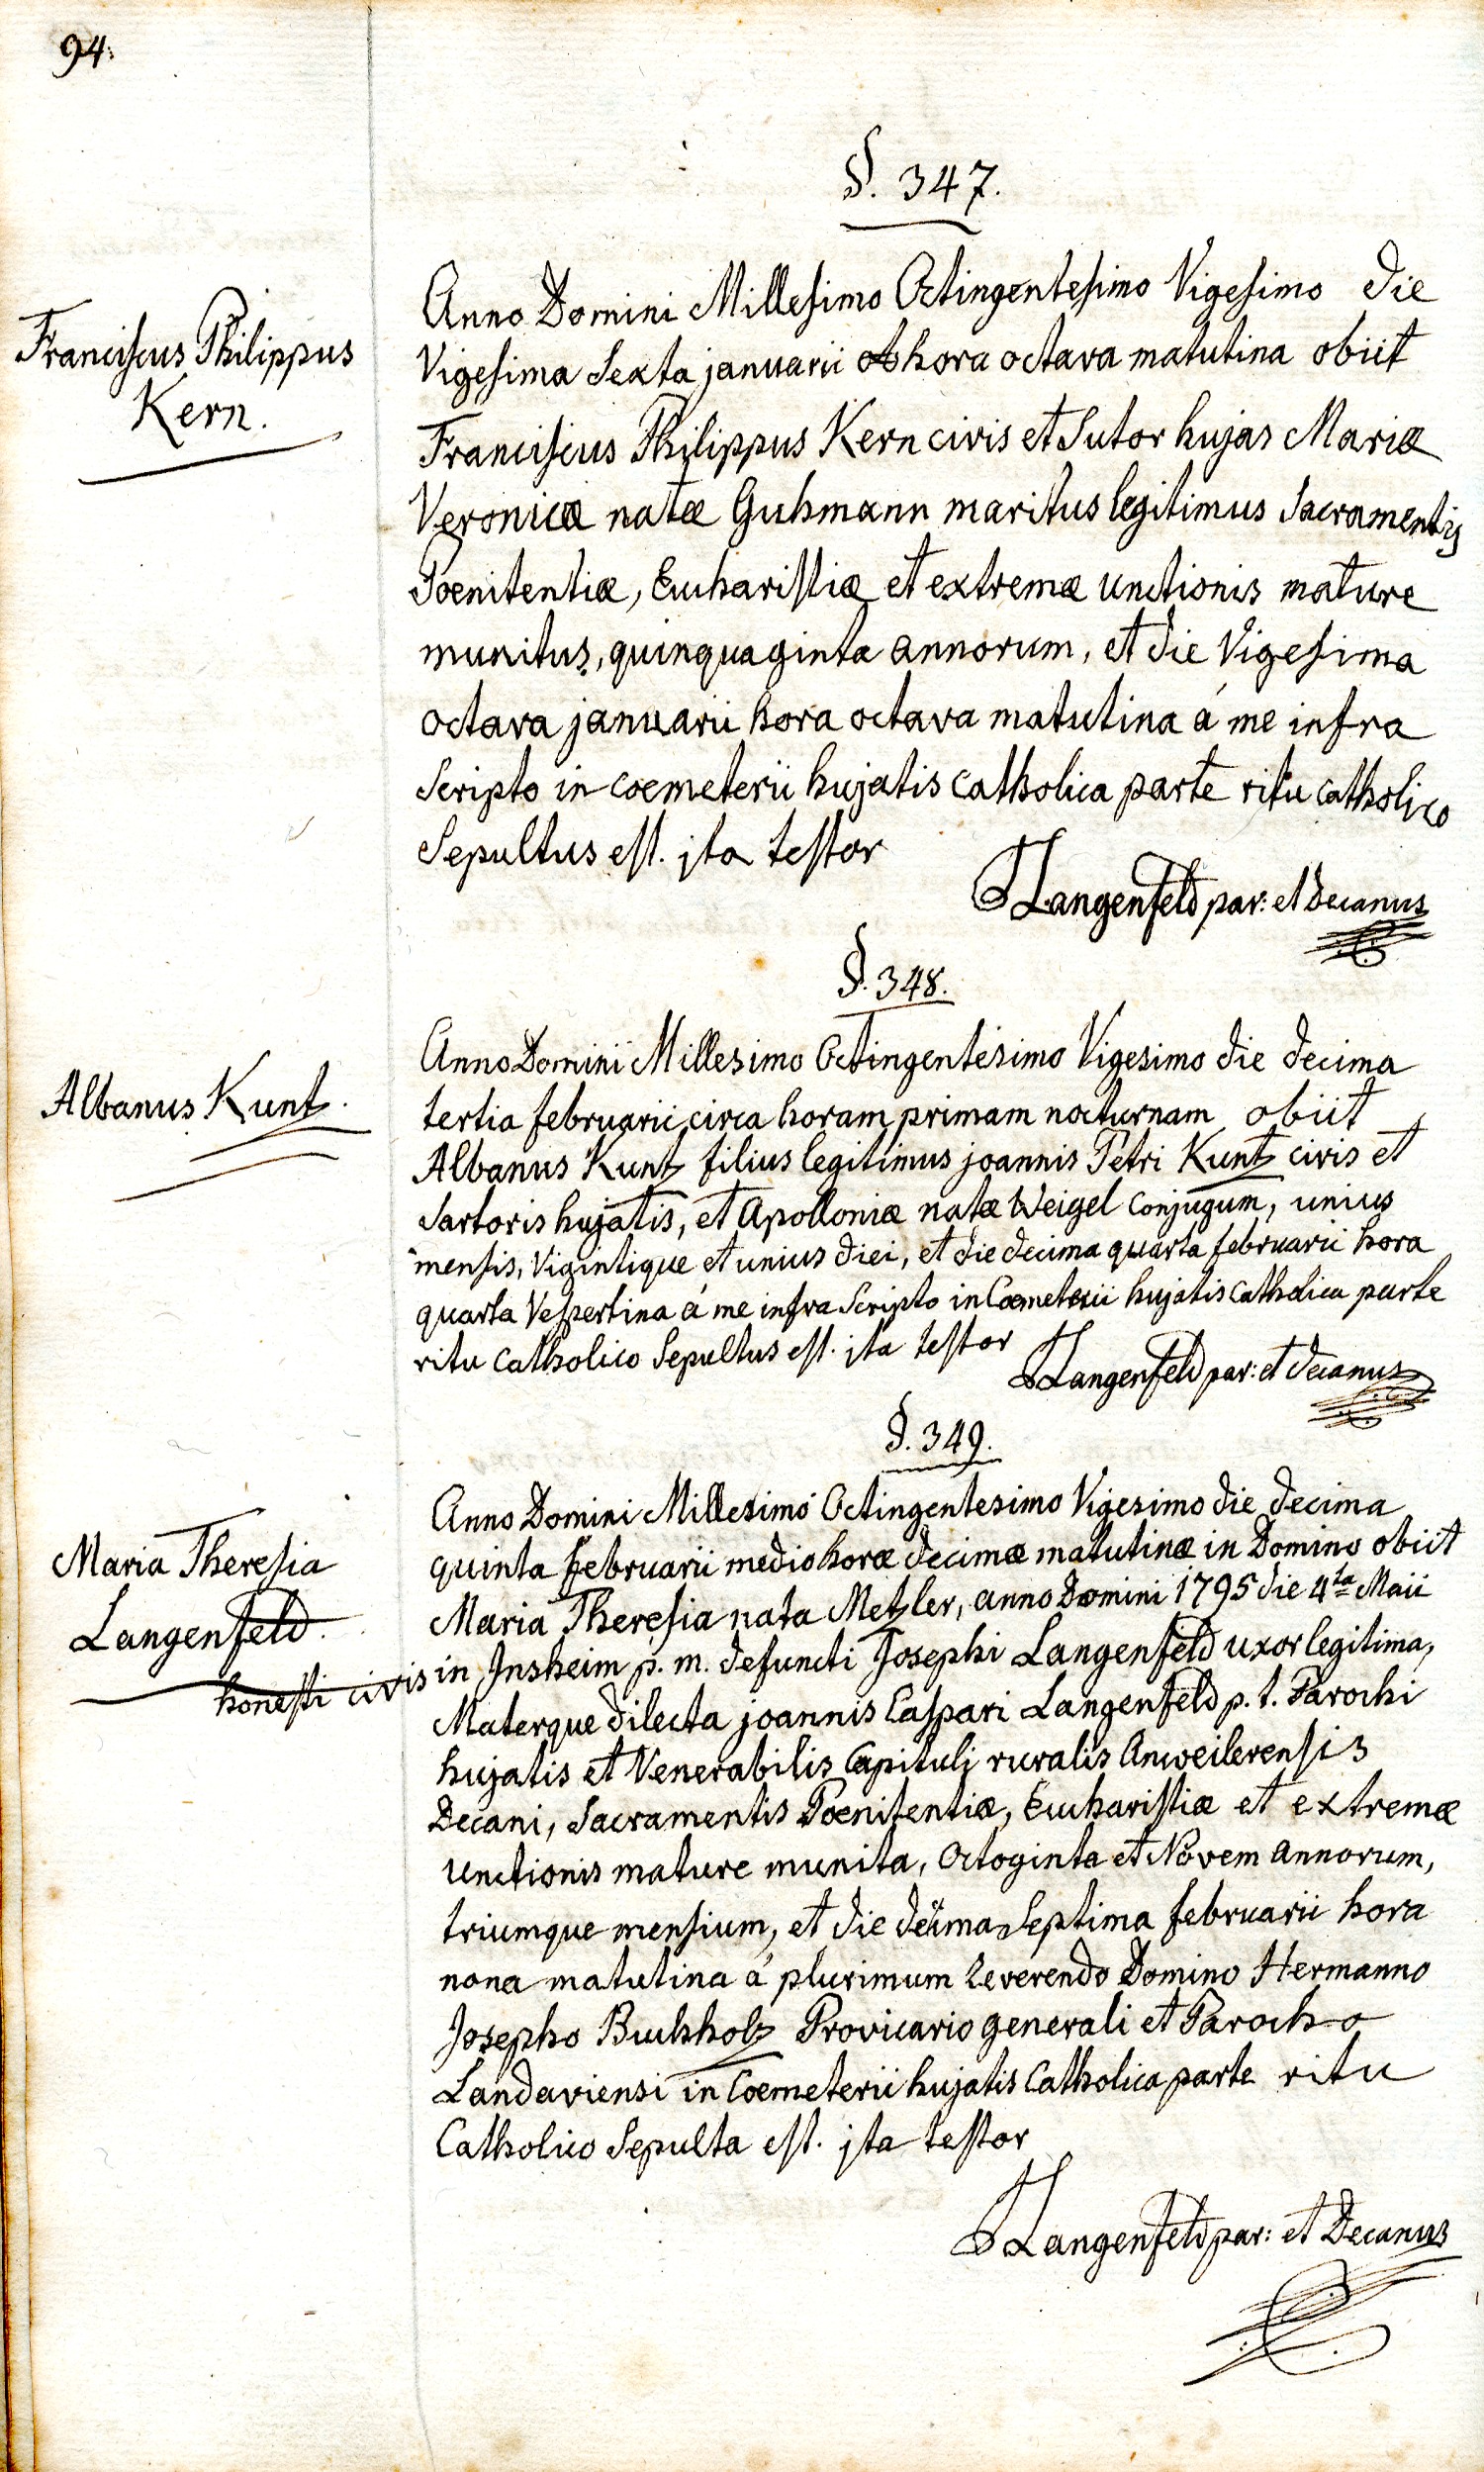 94.
§. 347.
Franciscus Philippus
Kern.
Anno Domini Millesimo Octingentesimo Vigesimo die
Vigesima Sexta januarii hora octava matutina obiit
Franciscus Philippus Kern civis et Sutor hujas Mariæ
Veronicæ natæ Guhmann maritus legitimus Sacramentis
Poenitentiæ, Eucharistiæ et extremæ unctionis mature
munitus, quinquaginta annorum, et die Vigesima
octava januarii hora octava matutina á me infra
Scripto in coemeterii hujatis catholica parte ritu catholico
Sepultus est. jta testor
Langenfeld par: et decanus
§. 348.
Albanus Kuntz.
Anno Domini Millesimo Octingentesimo Vigesimo die decima
tertia februarii circa horam primam nocturnam obiit
Albanus Kuntz filius legitimus joannis Petri Kuntz civis et
Sartoris hujatis, et Apolloniæ natæ Weigel Conjugum, unius
mensis, Vigintique et unius diei, et die decima quarta februarii hora
quarta Vespertina á me infra Scripto in Coemeterii hujatis Catholica parte
ritu Catholico Sepultus est. jta testor
Langenfeld par: et decanus
§. 349.
Maria Theresia
Langenfeld.
Anno Domini Millesimo Octingentesimo Vigesimo die decima
quinta februarii medio horæ decimæ matutinæ in Domino obiit
Maria Theresia nata Metzler, anno Domini 1795 die 4ta Maii
honesti civis in Jnsheim p. m. defuncti Josephi Langenfeld uxor legitima,
Materque dilecta joannis Caspari Langenfeld p. t. Parochi
hujatis et Venerabilis Capituli ruralis Anweilerensis
Decani, Sacramentis Poenitentiæ, Eucharistiæ et extremæ
Unctionis mature munita, Octoginta et Novem annorum,
triumque mensium, et die decima Septima februarii hora
nona matutina á plurimum Reverendo Domino Hermanno
Josepho Buchholz Provicario generali et Parocho
Landaviensi in Coemeterii hujatis Catholica parte ritu
Catholico Sepulta est. jta testor
Langenfeld par: et Decanus